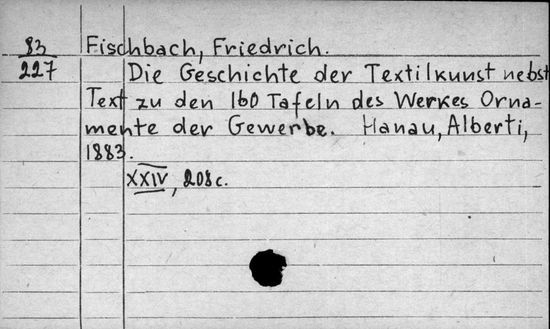 83 Fischbach, Friedrich.
227 Die Geschichte der Textilkunst nebst
Text zu den 160 Tafeln des Werkes Orna-
mente der Gewerbe. Hanau, Alberti,
1883.
XXIV, 208 c.